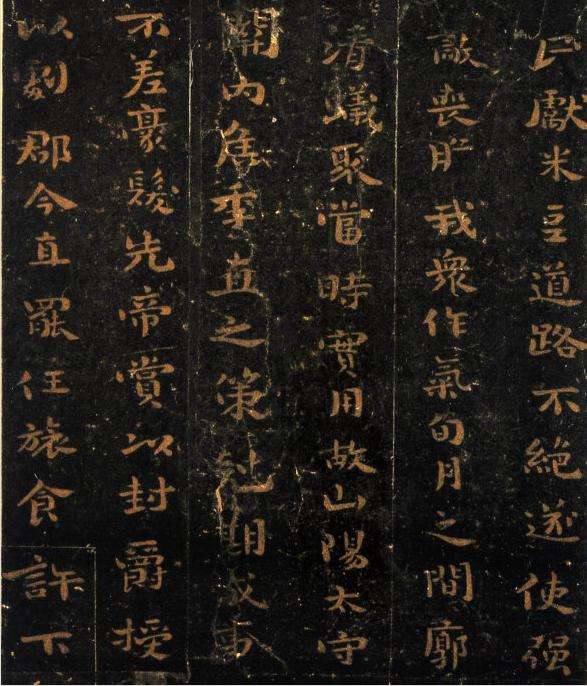 民獻米豆道路不絕遂使强
敵喪膽我衆作氣旬月之間廓
清蟻聚當時實用故山陽太守
關內侯季直之策剋期成事
不差豪髮先帝賞以封爵授
以劇郡今直罷任旅食許下